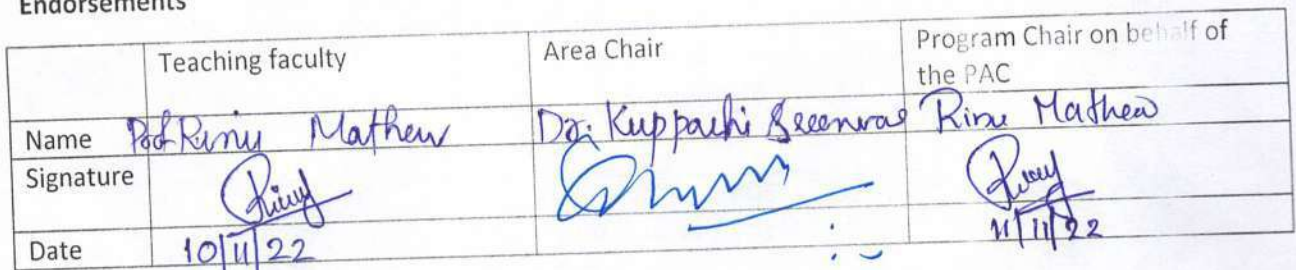 Endorsements
Teaching faculty Area Chair Program Chair on behalf of
the PAC
Name Prof Rinu Mathew Dr. Kuppachi Sreenivas Rinu Mathew
Signature
Date 10/11/22 11/11/22